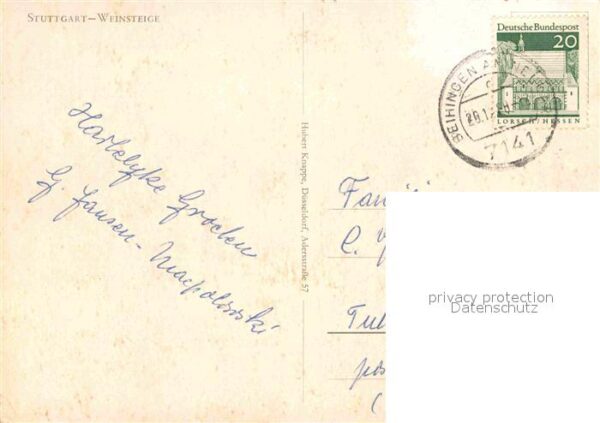 STUTTGART–WEINSTEIGE
Hartelyke Groeten
G. Jansen-
Hubert Knappe, Düsseldorf, Adersstraße 57
Deutsche Bundespost
20
LORSCH/HESSEN
BEIHINGEN AM
7141
privacy protection
Datenschutz